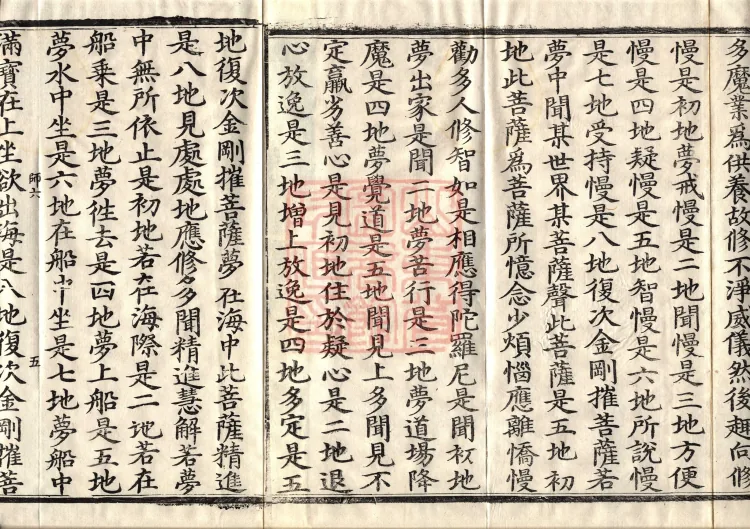 多魔業爲供養故修不淨威儀然後趣向修
慢是初地夢戒慢是二地聞慢是三地方便
慢是四地疑慢是五地智慢是六地所說慢
是七地受持慢是八地復次金剛摧菩薩若
夢中聞某世界某菩薩聲此菩薩是五地初
地此菩薩爲菩薩所憶念少煩惱應離憍慢
勸多人修智如是相應得陀羅尼是聞初地
夢出家是聞二地夢苦行是三地夢道場降
魔是四地夢覺道是五地聞見上多聞見不
定羸劣善心是見初地住於疑心是二地退
心放逸是三地增上放逸是四地多定是五
地復次金剛摧菩薩夢在海中此菩薩精進
是八地見處處地應修多聞精進慧解若夢
中無所依止是初地若在海際是二地若在
船乘是三地夢往去是四地夢上船是五地
夢水中坐是六地在船中坐是七地夢船中
師六 五
滿寶在上坐欲出海是八地復次金剛摧菩